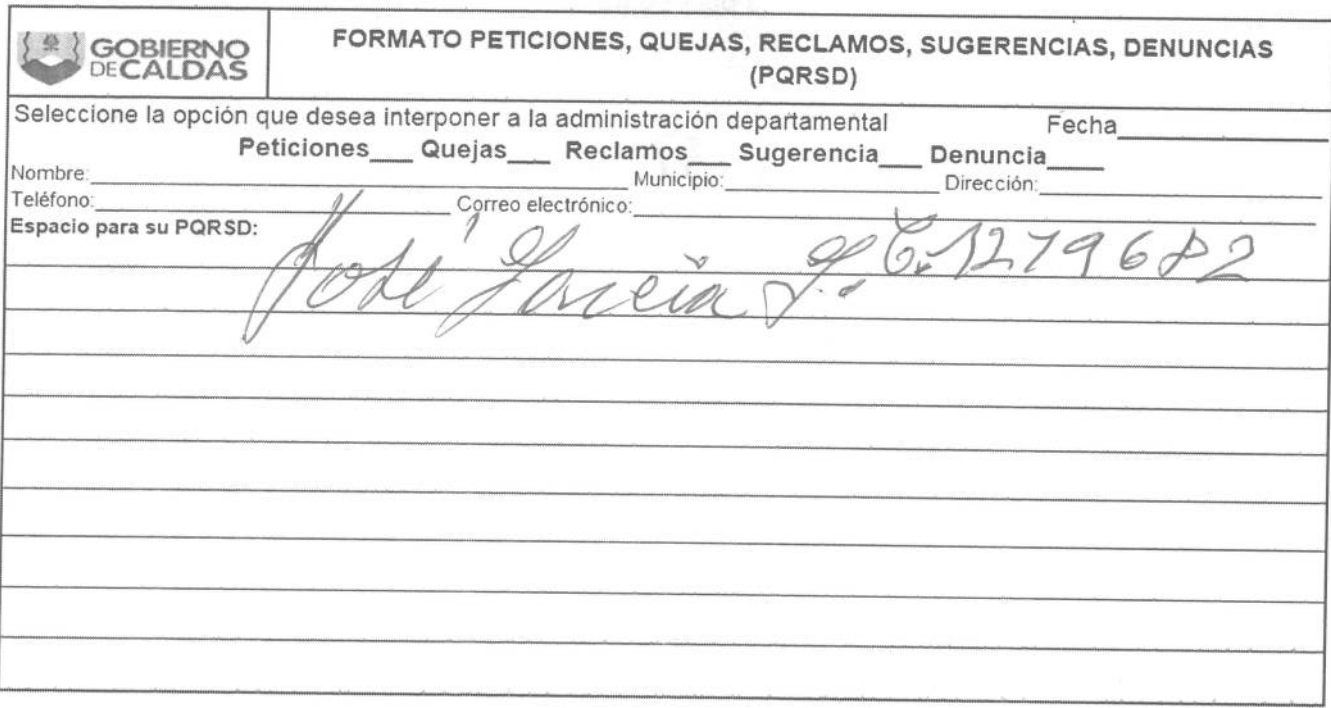 GOBIERNO
DE CALDAS
FORMATO PETICIONES, QUEJAS, RECLAMOS, SUGERENCIAS, DENUNCIAS
(PQRSD)
Seleccione la opción que desea interponer a la administración departamental Fecha
Peticiones___ Quejas___ Reclamos___ Sugerencia___ Denuncia____
Nombre: Municipio: Dirección:
Teléfono: Correo electrónico:
Espacio para su PQRSD:
José García C. 1279682